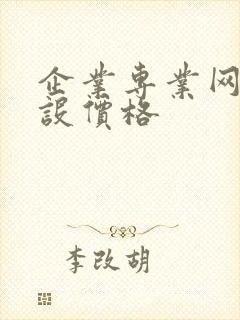 企業専業网
設價格
李改胡